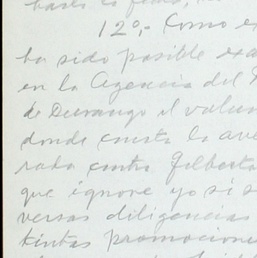 12º,- Como e
ha sido posible exa
en la Agencia del
de Durango el volum
donde consta la ave
rada contra Gilberto
que ignore yo si s
versas diligencias
tintas promocione